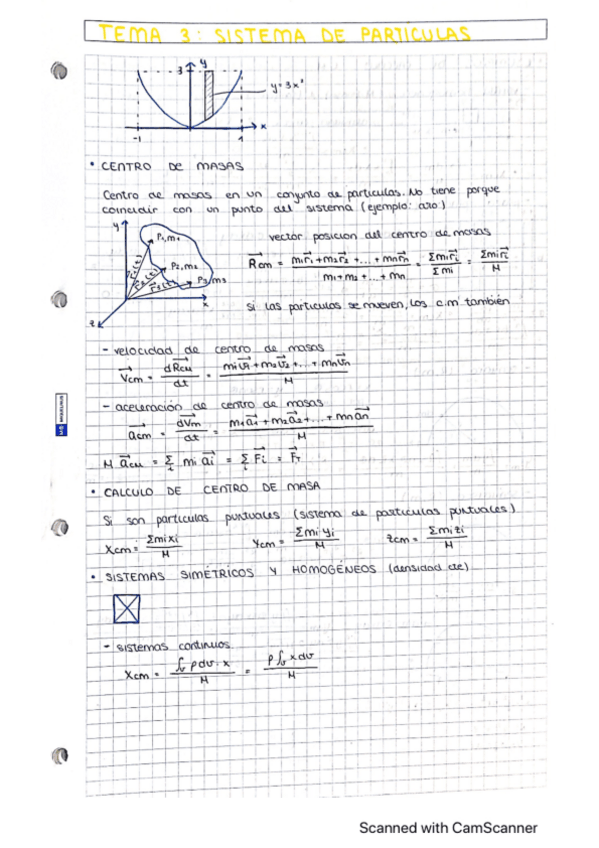 TEMA 3: SISTEMA DE PARTICULAS
3 y
y = 3x²
-1 1 x
• CENTRO DE MASAS
Centro de masas en un conjunto de particulas. No tiene porque
coincidir con un punto del sistema (ejemplo: aro)
y
P₁,m₁
P₂,m₂
P₃,m₃
r₁(t)
r₂(t)
r₃(t)
x
z
vector posicion del centro de masas
R⃗cm = (m₁r⃗₁ + m₂r⃗₂ + ... + mnr⃗n) / (m₁ + m₂ + ... + mn) = Σmir⃗i / Σmi = Σmir⃗i / M
si las particulas se mueven, los c.m también
- velocidad de centro de masas
V⃗cm = dR⃗cm / dt = (m₁v⃗₁ + m₂v⃗₂ + ... + mnv⃗n) / M
- aceleración de centro de masas
a⃗cm = dV⃗m / dt = (m₁a⃗₁ + m₂a⃗₂ + ... + mna⃗n) / M
M a⃗cm = Σi mi a⃗i = Σi F⃗i = F⃗T
• CALCULO DE CENTRO DE MASA
Si son particulas puntuales (sistema de particulas puntuales)
Xcm = Σmixi / M Ycm = Σmi yi / M Zcm = Σmizi / M
• SISTEMAS SIMÉTRICOS Y HOMOGÉNEOS (densidad cte)
- sistemas continuos
Xcm = ∫v ρdv·x / M = ρ∫v xdv / M
Scanned with CamScanner